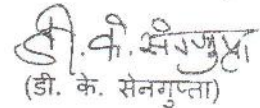 डी. के. सेनगुप्ता
(डी. के. सेनगुप्ता)